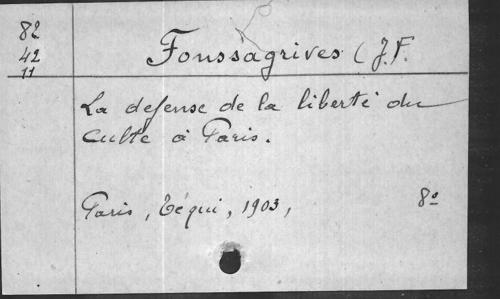 82
42
11
Fonssagrives (J.F.
La defense de la liberté du
culte à Paris.
Paris, Téqui, 1903, 8º